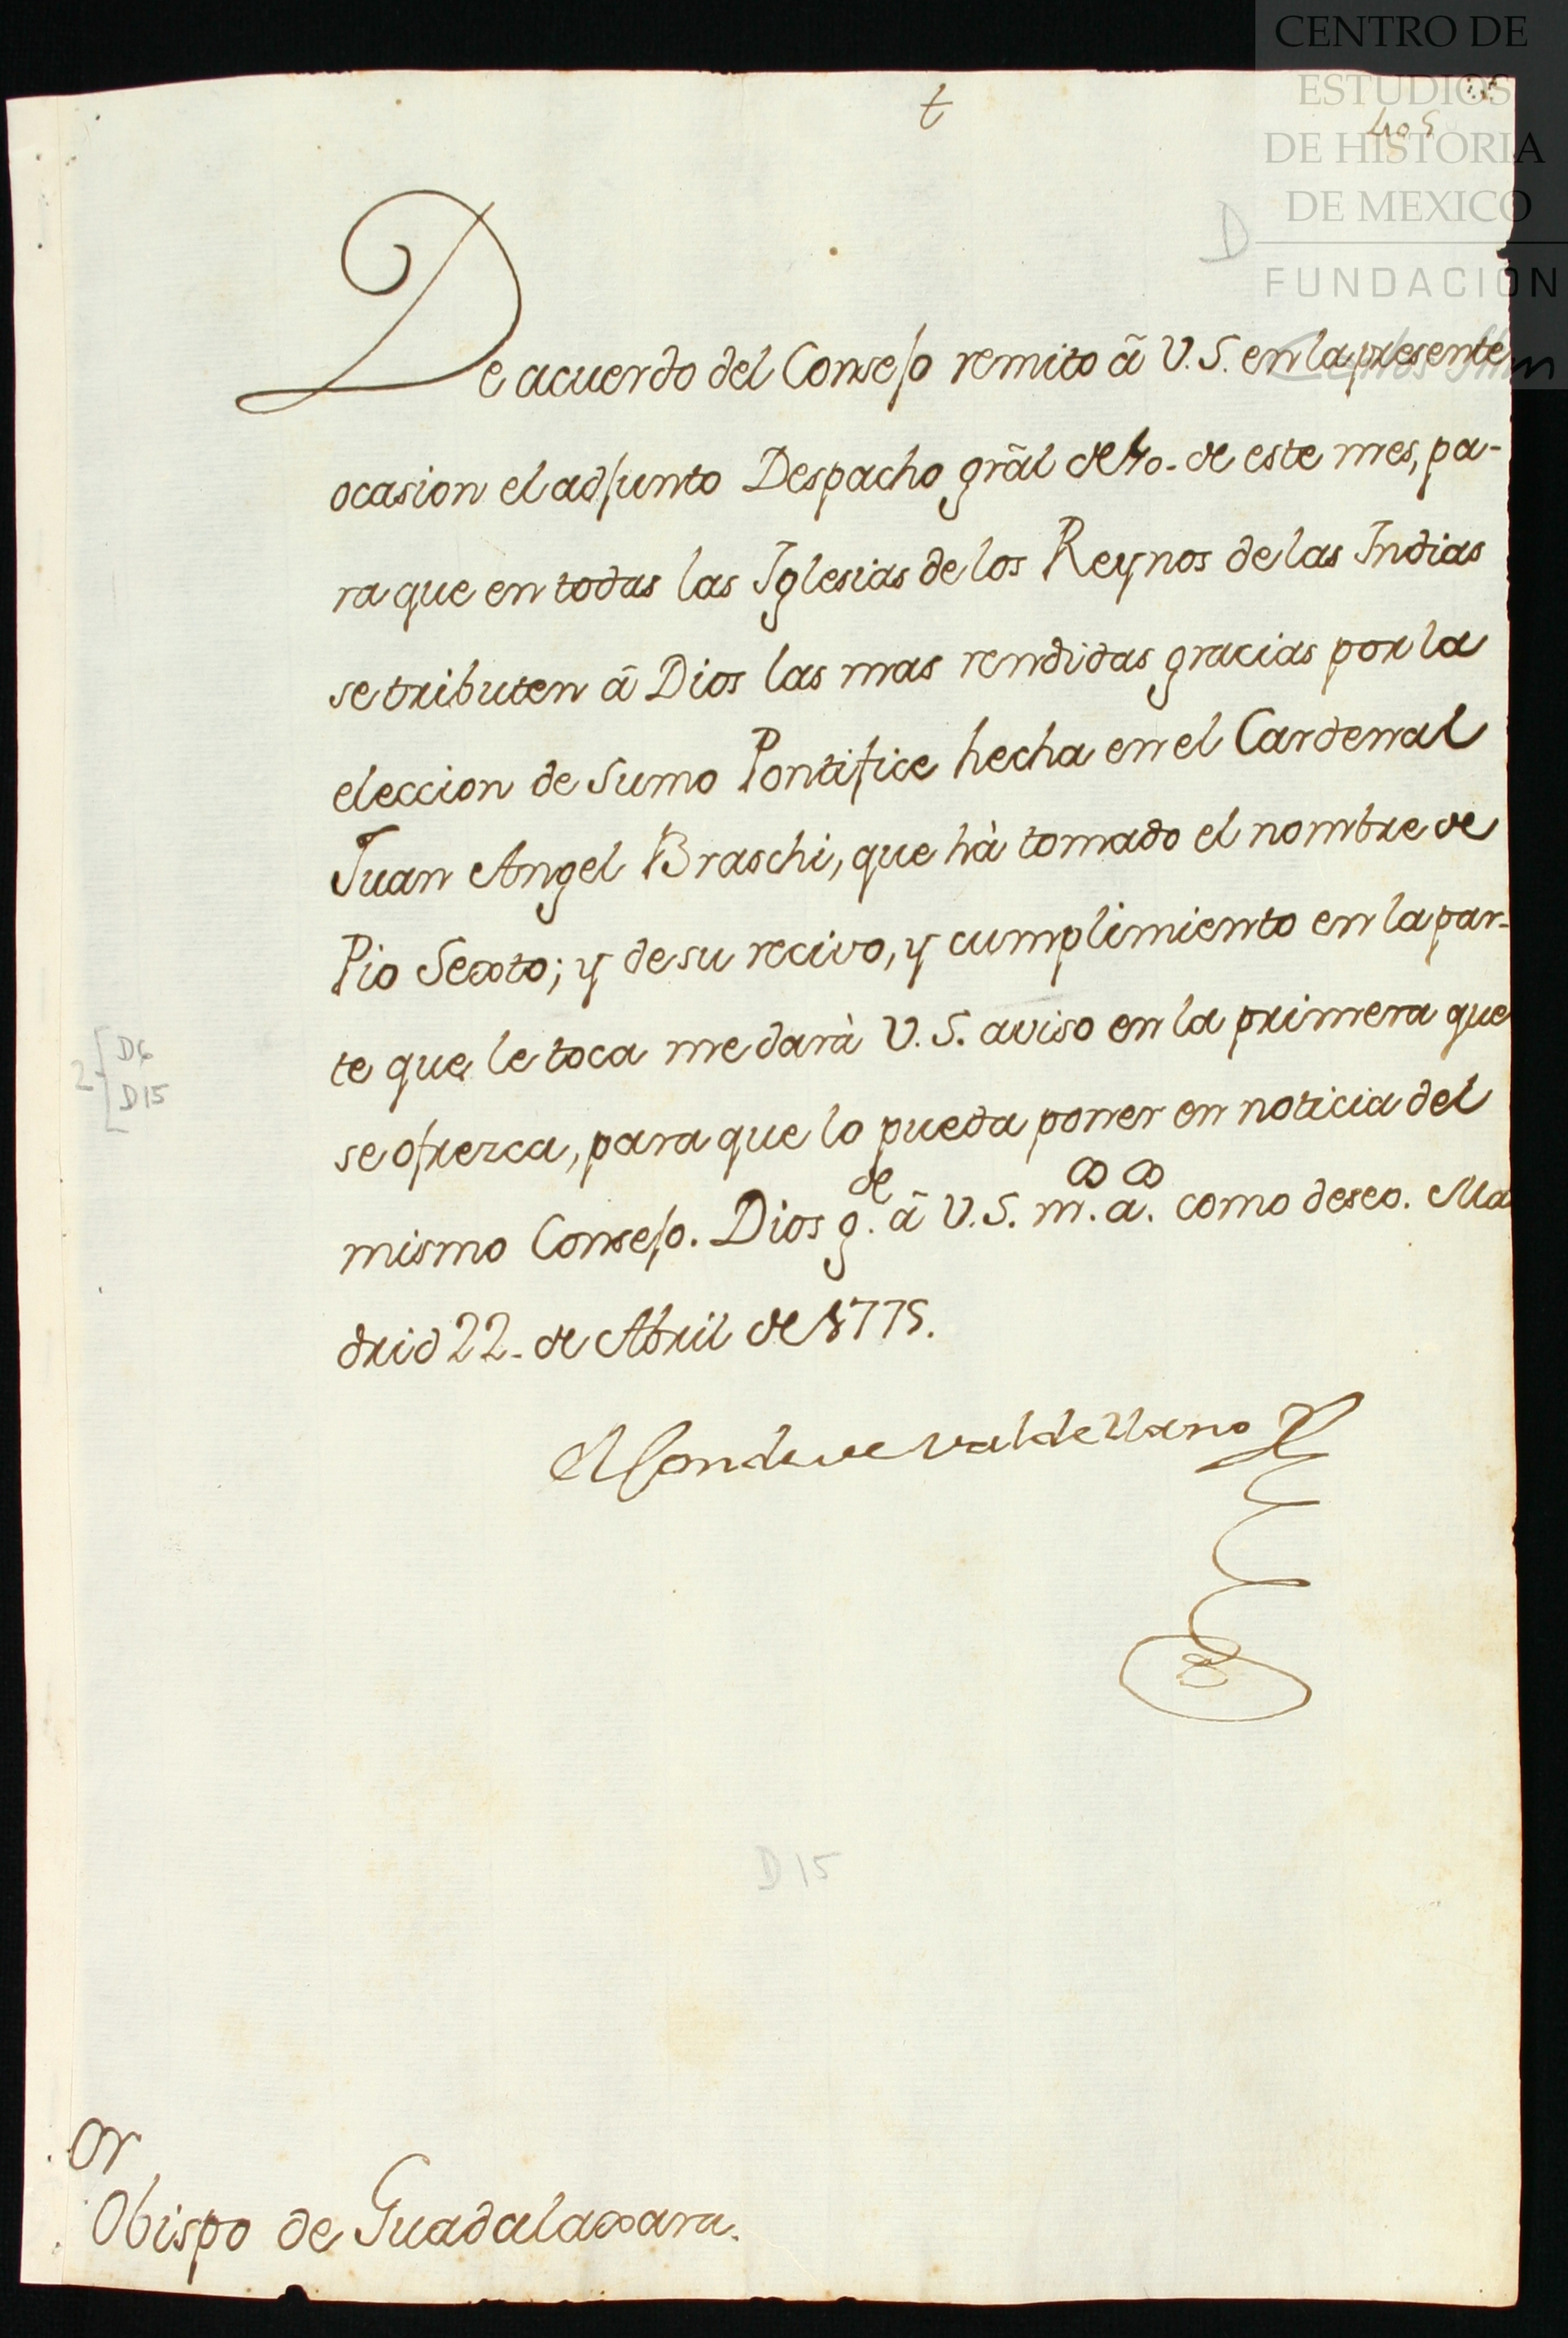 CENTRO DE
ESTUDIOS
DE HISTORIA
DE MEXICO
FUNDACIÓN
Carlos Slim
t
405
D
De acuerdo del Consejo remito â V. S. en la presente
ocasion el adjunto Despacho grãl de 10. de este mes, pa-
ra que en todas las Iglesias de los Reynos de las Indias
se tributen â Dios las mas rendidas gracias por la
eleccion de Sumo Pontifice hecha en el Cardenal
Juan Angel Braschi, que hà tomado el nombre de
Pio Sexto; y de su recivo, y cumplimiento en la par-
te que le toca me darà V. S. aviso en la primera que
se ofrezca, para que lo pueda poner en noticia del
mismo Consejo. Dios g.de â V. S. m.s a.s como deseo. Ma
drid 22. de Abril de 1775.
El Conde de Valdellano
2 D6
D15
D15
or
Obispo de Guadalaxara.